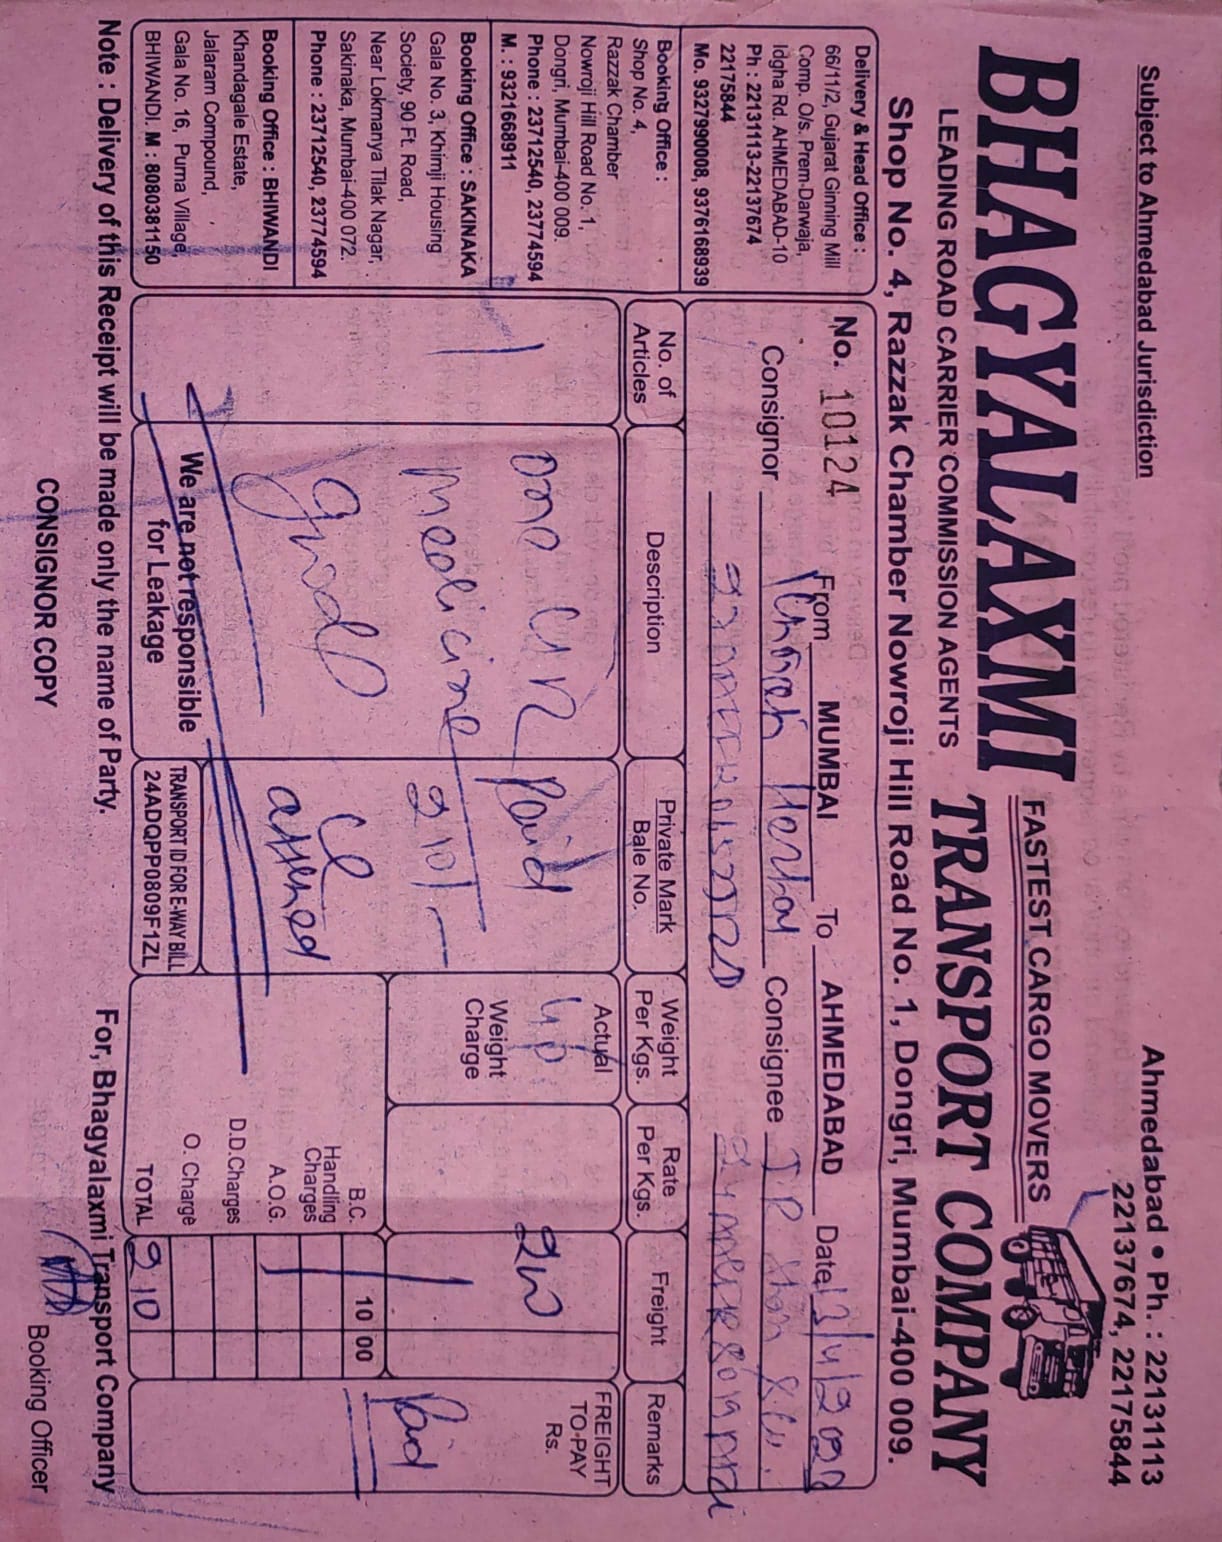 Subject to Ahmedabad Jurisdiction
Ahmedabad • Ph. : 22131113
22137674, 22175844
BHAGYALAXMI
FASTEST CARGO MOVERS
TRANSPORT COMPANY
LEADING ROAD CARRIER COMMISSION AGENTS
Shop No. 4, Razzak Chamber Nowroji Hill Road No. 1, Dongri, Mumbai-400 009.
Delivery & Head Office :
66/11/2, Gujarat Ginning Mill
Comp. O/s. Prem-Darwaja,
Idgha Rd. AHMEDABAD-10
Ph : 22131113-22137674
22175844
Mo. 9327990008, 9376168939
Booking Office :
Shop No. 4,
Razzak Chamber
Nowroji Hill Road No. 1,
Dongri, Mumbai-400 009.
Phone : 23712540, 23774594
M. : 9321668911
Booking Office : SAKINAKA
Gala No. 3, Khimji Housing
Society, 90 Ft. Road,
Near Lokmanya Tilak Nagar.
Sakinaka, Mumbai-400 072.
Phone : 23712540, 23774594
Booking Office : BHIWANDI
Khandagale Estate,
Jalaram Compound,
Gala No. 16, Purna Village,
BHIWANDI. M : 8080381150
No. 10124 From MUMBAI To AHMEDABAD Date
Consignor Consignee
No. of Articles
Description
Private Mark
Bale No.
Weight Per Kgs.
Rate Per Kgs.
Freight
Remarks
1
medicine
good
Paid
210/-
Actual
40
Weight Charge
200
FREIGHT TO-PAY Rs.
Paid
B.C. 10 00
Handling Charges
A.O.G.
D.D.Charges
O. Charge
TOTAL 210
We are not responsible
for Leakage
TRANSPORT ID FOR E-WAY BILL
24ADQPP0809F1ZL
Note : Delivery of this Receipt will be made only the name of Party.
For, Bhagyalaxmi Transport Company
CONSIGNOR COPY
Booking Officer